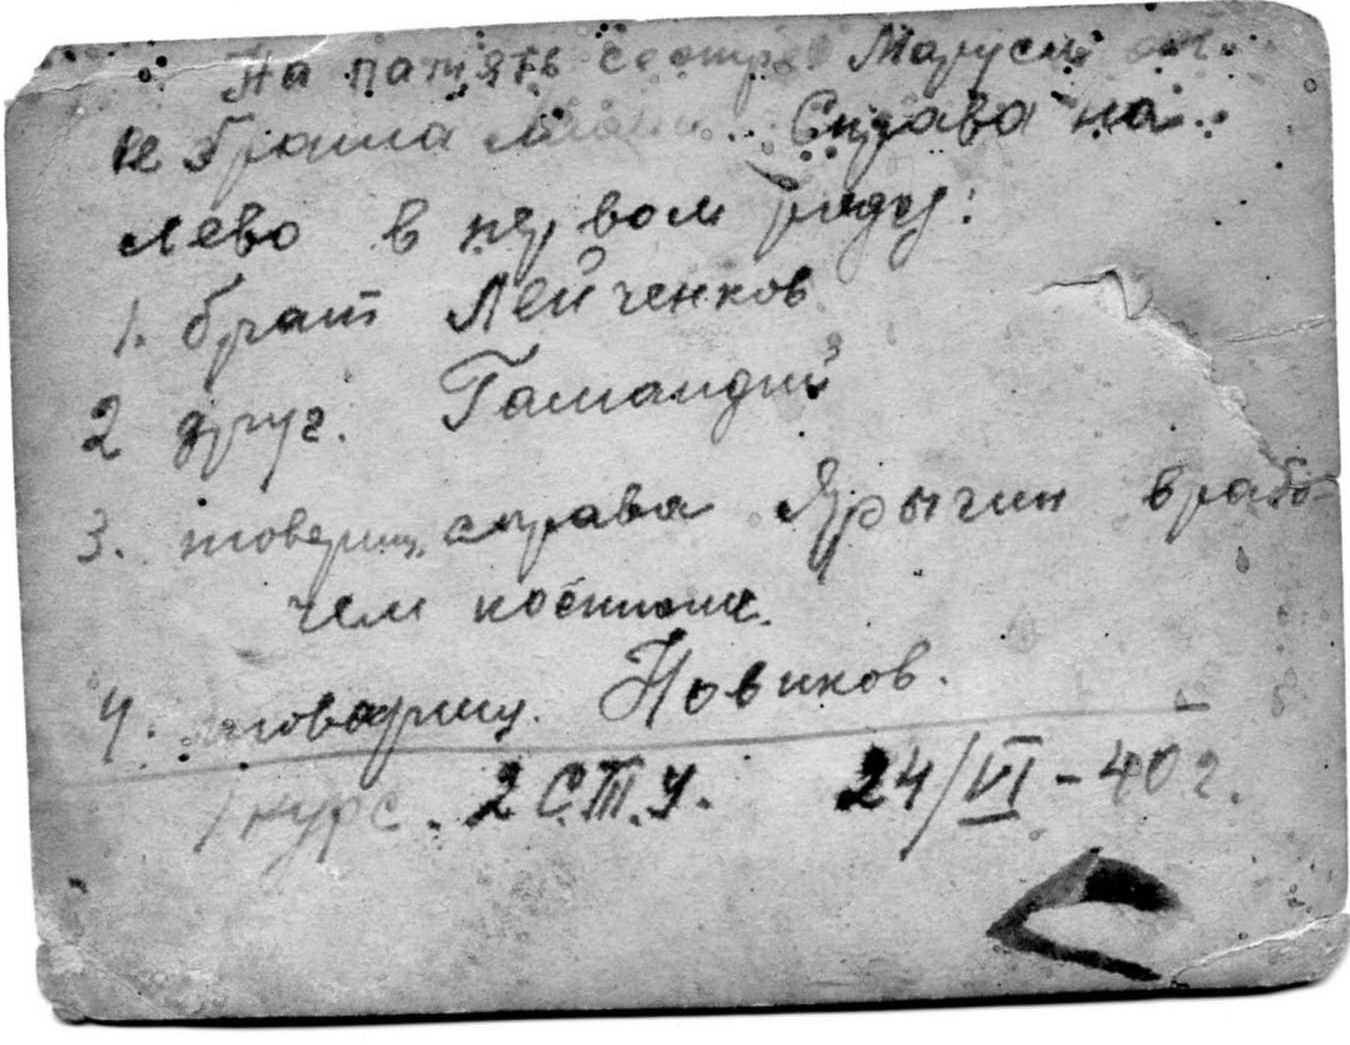 На память сестре Марусе от
брата Справа на
лево в первом ряду:
1. брат Лейченков
2 друг.
3. товерищ справа Ярыгин в рабо-
чем костюме.
4. товарищ. Новиков.
1 курс. 2 С.Т.У. 24/VI-40 г.